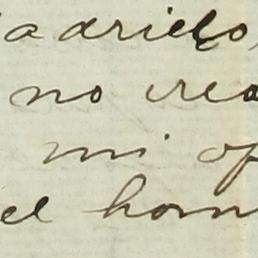 no crea
mi op
el hom